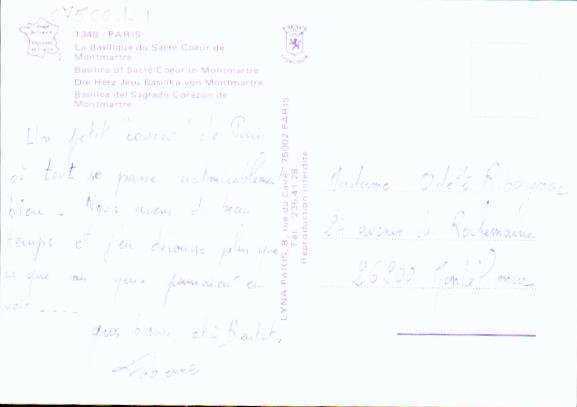 1348 - PARIS
La Basilique du Sacré-Coeur de
Montmartre
Basilica of Sacré-Coeur in Montmartre
Die Herz-Jesu-Basilika von Montmartre
Basilica del Sagrado Corazón de
Montmartre
Un petit "coucou" de Paris
où tout se passe admirablement
bien. Nous avons du beau
temps et j'en découvre plus que
ce que mes yeux peuvent en
voir ....
gros bisous, et à Bientôt,
LYNA PARIS, 8, rue du Caire 75002 PARIS
Tél. 236.41.28
Reproduction interdite
Madame Odette
24 avenue de Rochemaure
26200 Montélimar